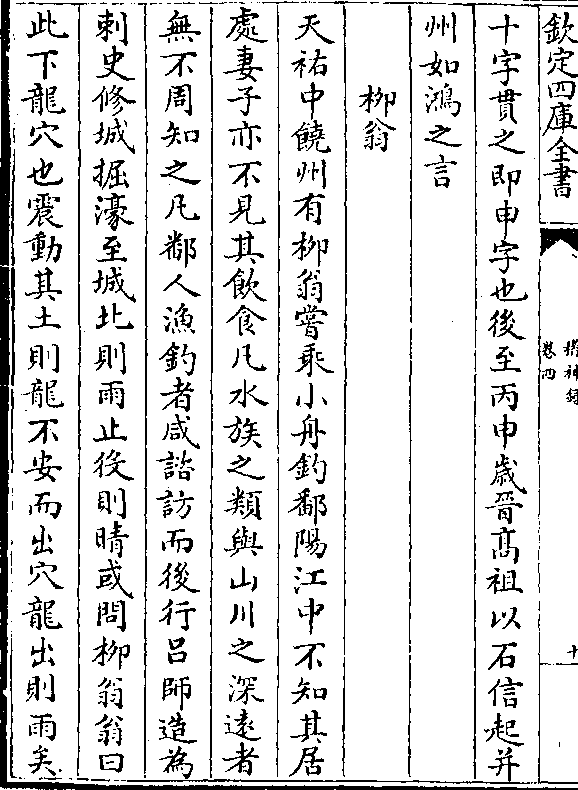 欽定四庫全書
稽神録
卷四
十
十字貫之即申字也後至丙申歲晉高祖以石信起并
州如鴻之言
柳翁
天祐中饒州有柳翁嘗乘小舟釣鄱陽江中不知其居
處妻子亦不見其飲食凡水族之類與山川之深遠者
無不周知之凡鄱人漁釣者咸諮訪而後行吕師造為
刺史修城掘濠至城北則雨止役則晴或問柳翁翁曰
此下龍穴也震動其土則龍不安而出穴龍出則雨矣